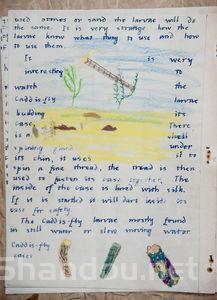 used stones or sand the larvae will do
the same. It is very strange how the
larvae know what thing to use and how
to use them.
It is very
interesting to
watch the
Caddisfly larvae
building its
case. There
is a which
spinning gland under
its chin, it uses it to
spin a fine thread, the thread is then
used to fasten its case together. The
inside of the case is lined with silk.
If it is startled it will dart inside its
case for safety.
The Caddisfly larvae mostly found
in still water or slow moving water.
Caddisfly
cases